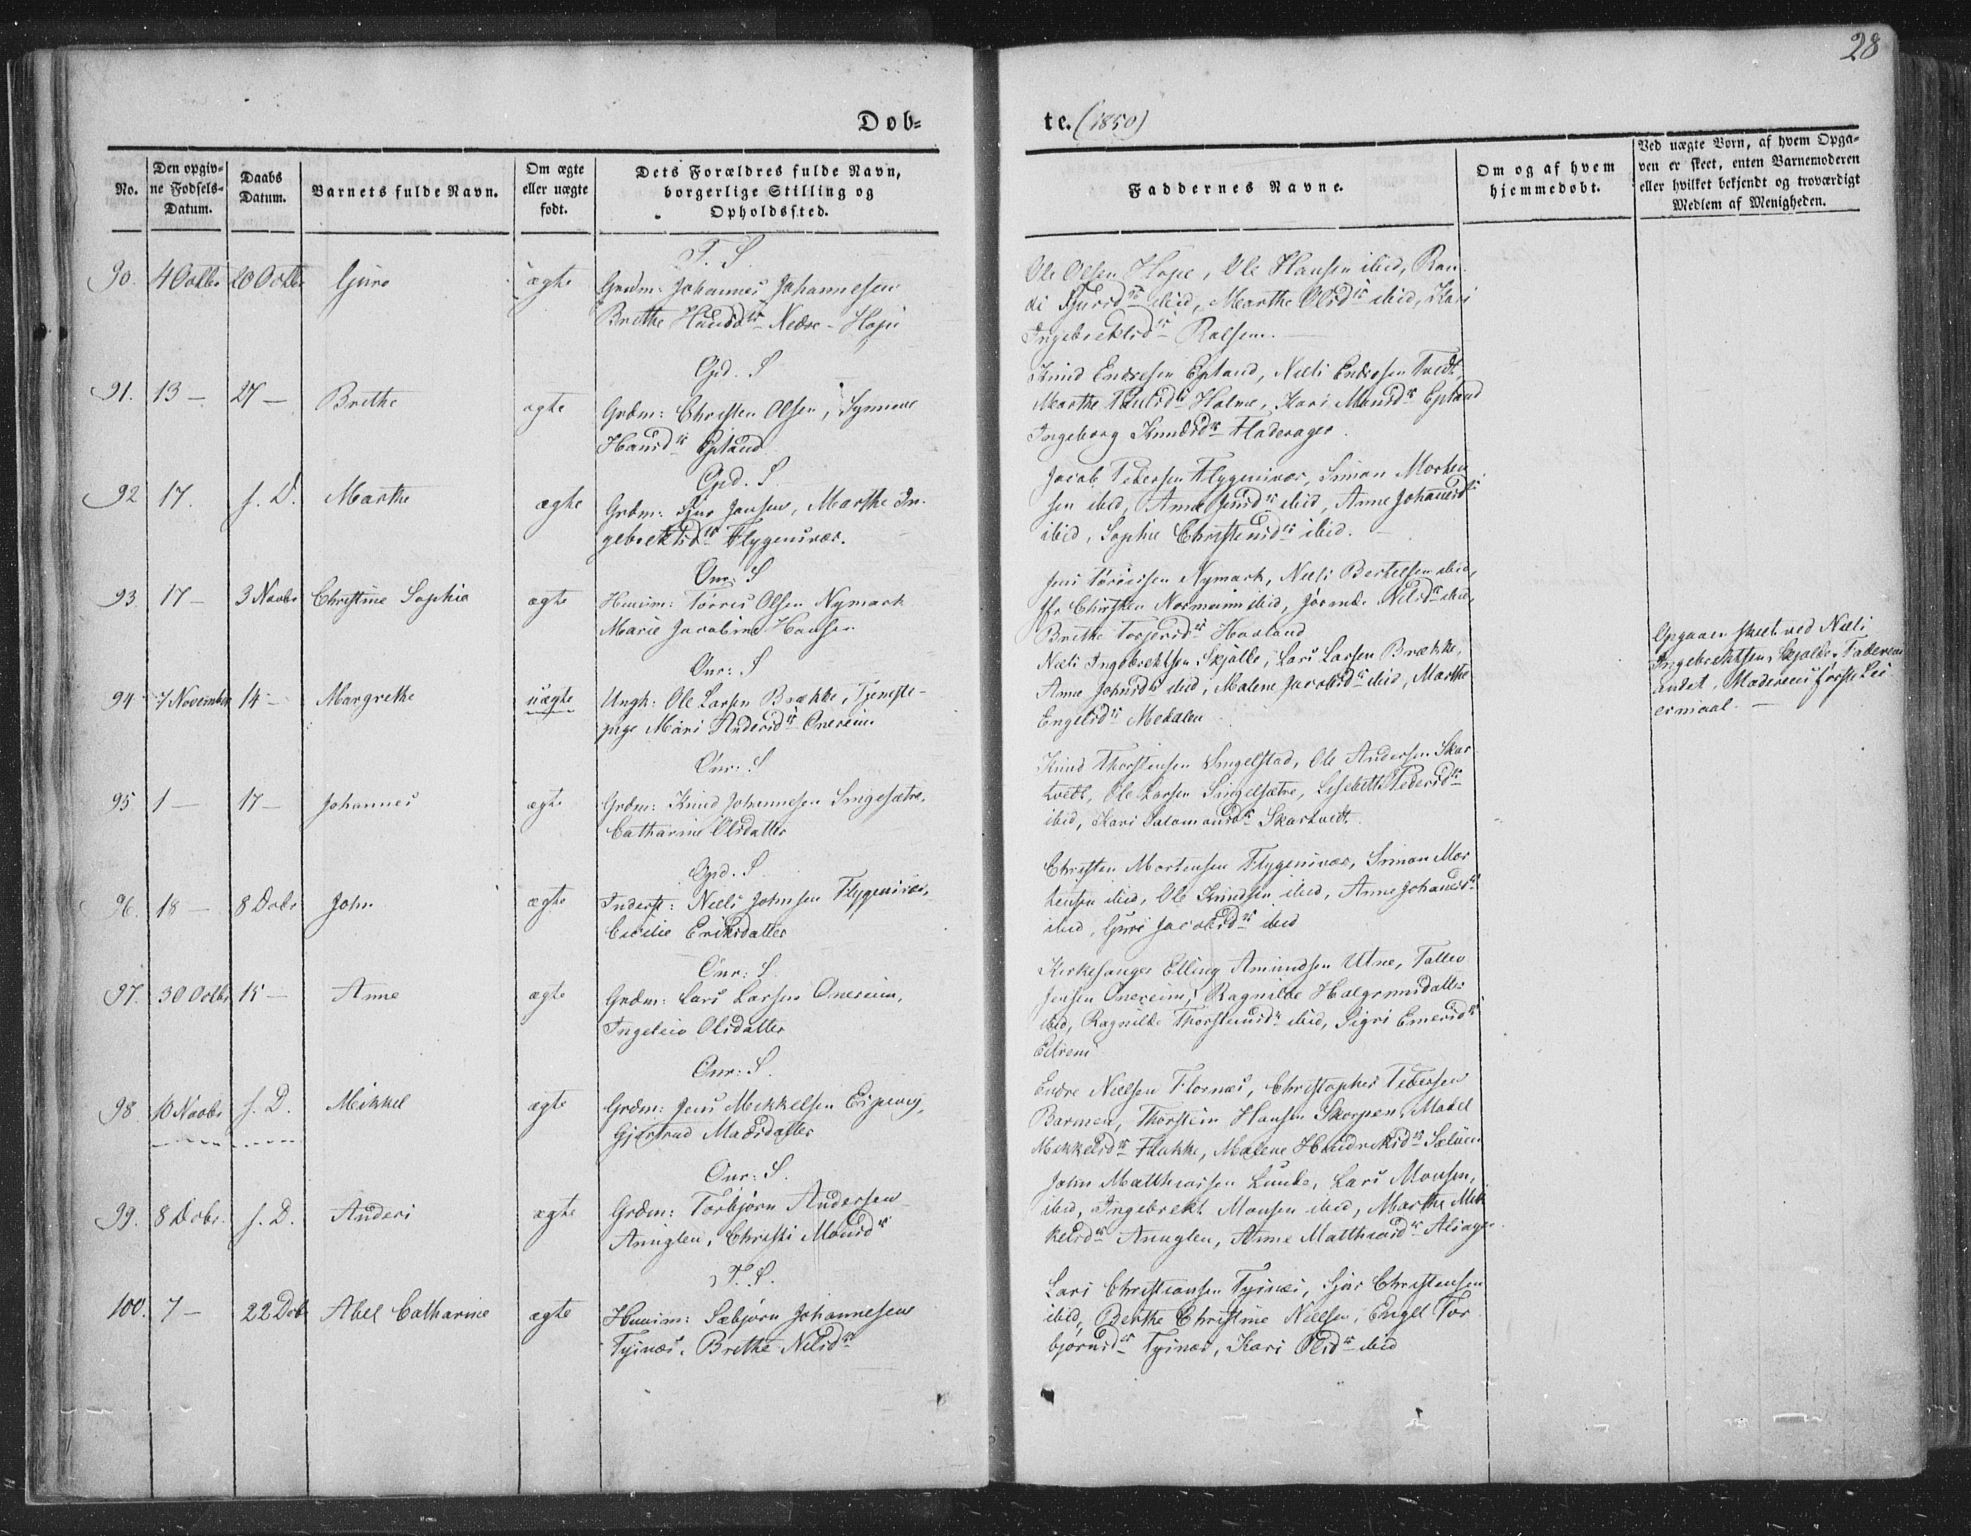 28
Døb-
te. (1850)
No.
Den opgiv-
ne Fødsels-
Datum.
Daabs
Datum.
Barnets fulde Navn.
Om ægte
eller uægte
født.
Dets Forældres fulde Navn,
borgerlige Stilling og
Opholdssted.
Faddernes Navne.
Om og af hvem
hjemmedøbt.
Ved uægte Børn, af hvem Opga-
ven er skeet, enten Barnemoderen
eller hvilket bekjendt og troværdigt
Medlem af Menigheden.
T. S.
90. 4 Octbr 20 Octbr Guro ægte Grdm: Johannes Johannesen
Brithe Nedre-Hope
Ole Olsen Hope, Ole Hansen ibid, Ran-
di ibid, Marthe Olsdr ibid, Kari
Ingebrektsdr
Opd. S
91. 13 — 27 — Brithe ægte Grdm: Christen Olsen, Synneve
Hansdr Epland
Knud Endresen Epland, Niels Endresen Tvedt,
Marthe Holme, Kari Monsdr Epland
Ingeborg Knudsdr Fladerager.
Opd. S.
92 17. s. D. Marthe ægte Grdm: Sjur Jensen, Marthe In-
gebrektsdr Flygensvær.
Jacob Pedersen Flygensvær, Simon Morten-
sen ibid, Anne ibid, Anne Johansdr
ibid, Sophie Christensdr ibid.
Onr: S
93. 17 — 3 Novbr Christine Sophie ægte Huusm: Torres Olsen Nymark
Marie Jacobine Hansen
Jens Nymark, Niels Bertelsen ibid,
Normann ibid, Nilsdr ibid,
Brithe Haaland
Onr: S
94 7 November 14 — Margrethe uægte Ungk: Ole Larsen Brække, Tjeneste-
pige Mari Andersdr Onereim
Niels Ingebrektsen Skjælde, Lars Larsen Brække,
Anne Johnsdr ibid, Malene Jacobsdr ibid, Marthe
Engelsdr Medalen
Opgaven skeet ved Niels
Ingebrektsen Skjælde. Faderens
andet, Moderens første Lei-
ermaal.
Onr: S
95. 1 — 17 — Johannes ægte Grdm: Knud Johannesen Singelsætre,
Catharine Olsdatter
Knud Thorstensen Singelstad, Ole Andersen Skar-
tvedt, Ole Larsen Singelsætre, Lisebeth Pedersdr
ibid, Kari Salomonsdr Skartvedt.
Opd. S.
96. 18 — 8 Dcbr John ægte Inderst: Niels Johnsen Flygensvær,
Cicilie Eriksdatter
Christen Mortensen Flygensvær, Simon Mor-
tensen ibid, Ole Knudsen ibid, Anne Johansdr
ibid, Guri Jacobsdr ibid
Onr: S.
97. 30 Octbr 15 — Anne ægte Grdm: Lars Larsen Onereim,
Olsdatter
Kirkesanger Elling Amundsen Utne, Tallev
Jensen Onereim, Ragnilde Halgrimsdatter
ibid, Ragnilde Thorstensdr ibid, Sigri
Eitrem
Onr: S.
98. 10 Novbr s. D. Mikkel ægte Grdm: Jens Mikkelsen Espevig,
Gjertrud Madsdatter
Endre Nielsen Flornæs, Christopher Pedersen
Barmen, Thorstein Hansen Skorpen, Madel
Mikkelsdr Flukke, Malene Hendriksdr Sælven
Onr: S.
99. 8 Dcbr. s. D. Anders ægte Grdm: Torbjørn Andersen
Anuglen, Christi Monsdr
John Matthiassen Lunde, Lars Monsen,
ibid, Ingebrekt Monsen ibid, Marthe Mik-
kelsdr Anuglen, Anne Matthiasdr
T. S.
100. 7 — 22 Dcb Abel Catharine ægte Huusm: Sæbjørn Johannesen
Tysnæs, Brithe Nilsdr
Lars Christiansen Tysnæs, Sjur Christensen
ibid, Berthe Christine Nielsen, Engel Tor-
bjørnsdr Tysnæs, Kari Olsdr ibid